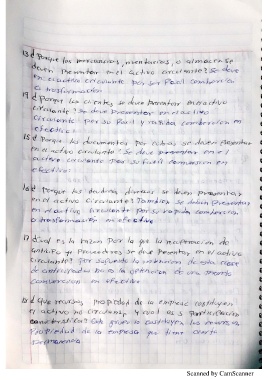 13 ¿ Porque las mercancías, inventarios, o almacen se
deben Presentar en el activo circulante? Se debe
en el activo circulante por ser facil conversion
o transformación
14 ¿ Porque los clientes se debe Presentar en el activo
circulante? Se debe Presentar en el activo
circulante por su facil y rapida conversion en
efectivo
15 ¿ Porque los documentos por cobrar se deben Presentar
en el activo circulante? Se debe presentar en el
activo circulante por su facil conversion en
efectivo.
16 ¿ Porque los deudores diversos se deben Presentar
en el activo Circulante? Tambien se deben Presentar
en el activo circulante Por su rapida conversion
o transformación en efectivo
17 ¿ Cual es la razon Por la que la
a Proveedores se debe Presentar en el activo
circulante? Por
de para la operacion de
conversion en efectivo.
18 ¿ Que recursos propiedad de la empresa constituyen
el activo no circulante, y cual es
caracteristica? Este grupo lo constituyen los
Propiedad de la empresa que tiene cierta
Permanencia
Scanned by CamScanner